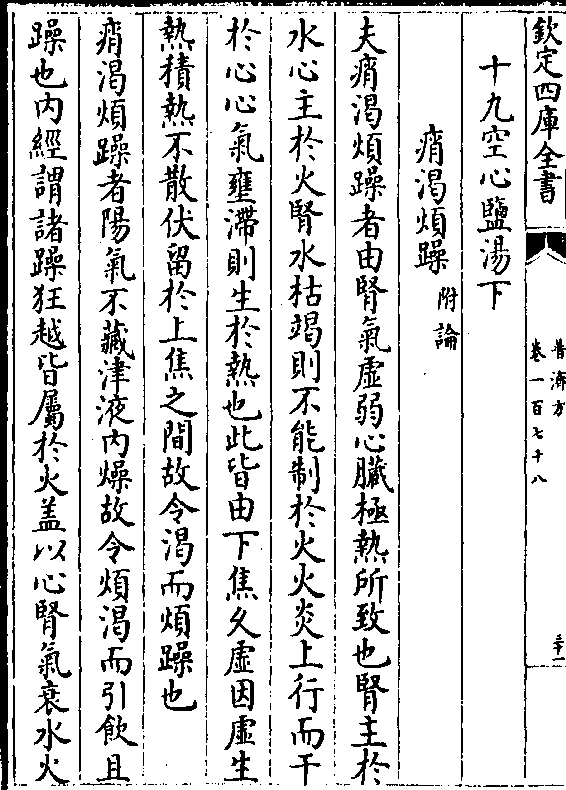 欽定四庫全書
普濟方
卷一百七十八
三十一
十九空心鹽湯下
痟渴煩躁附論
夫痟渴煩躁者由腎氣虛弱心臟極熱所致也腎主於
水心主於火腎水枯竭則不能制於火火炎上行而干
於心心氣壅滯則生於熱也此皆由下焦久虛因虛生
熱積熱不散伏留於上焦之間故令渴而煩躁也
痟渴煩躁者陽氣不藏津液内燥故令煩渴而引飲且
躁也内經謂諸躁狂越皆屬於火盖以心腎氣衰水火